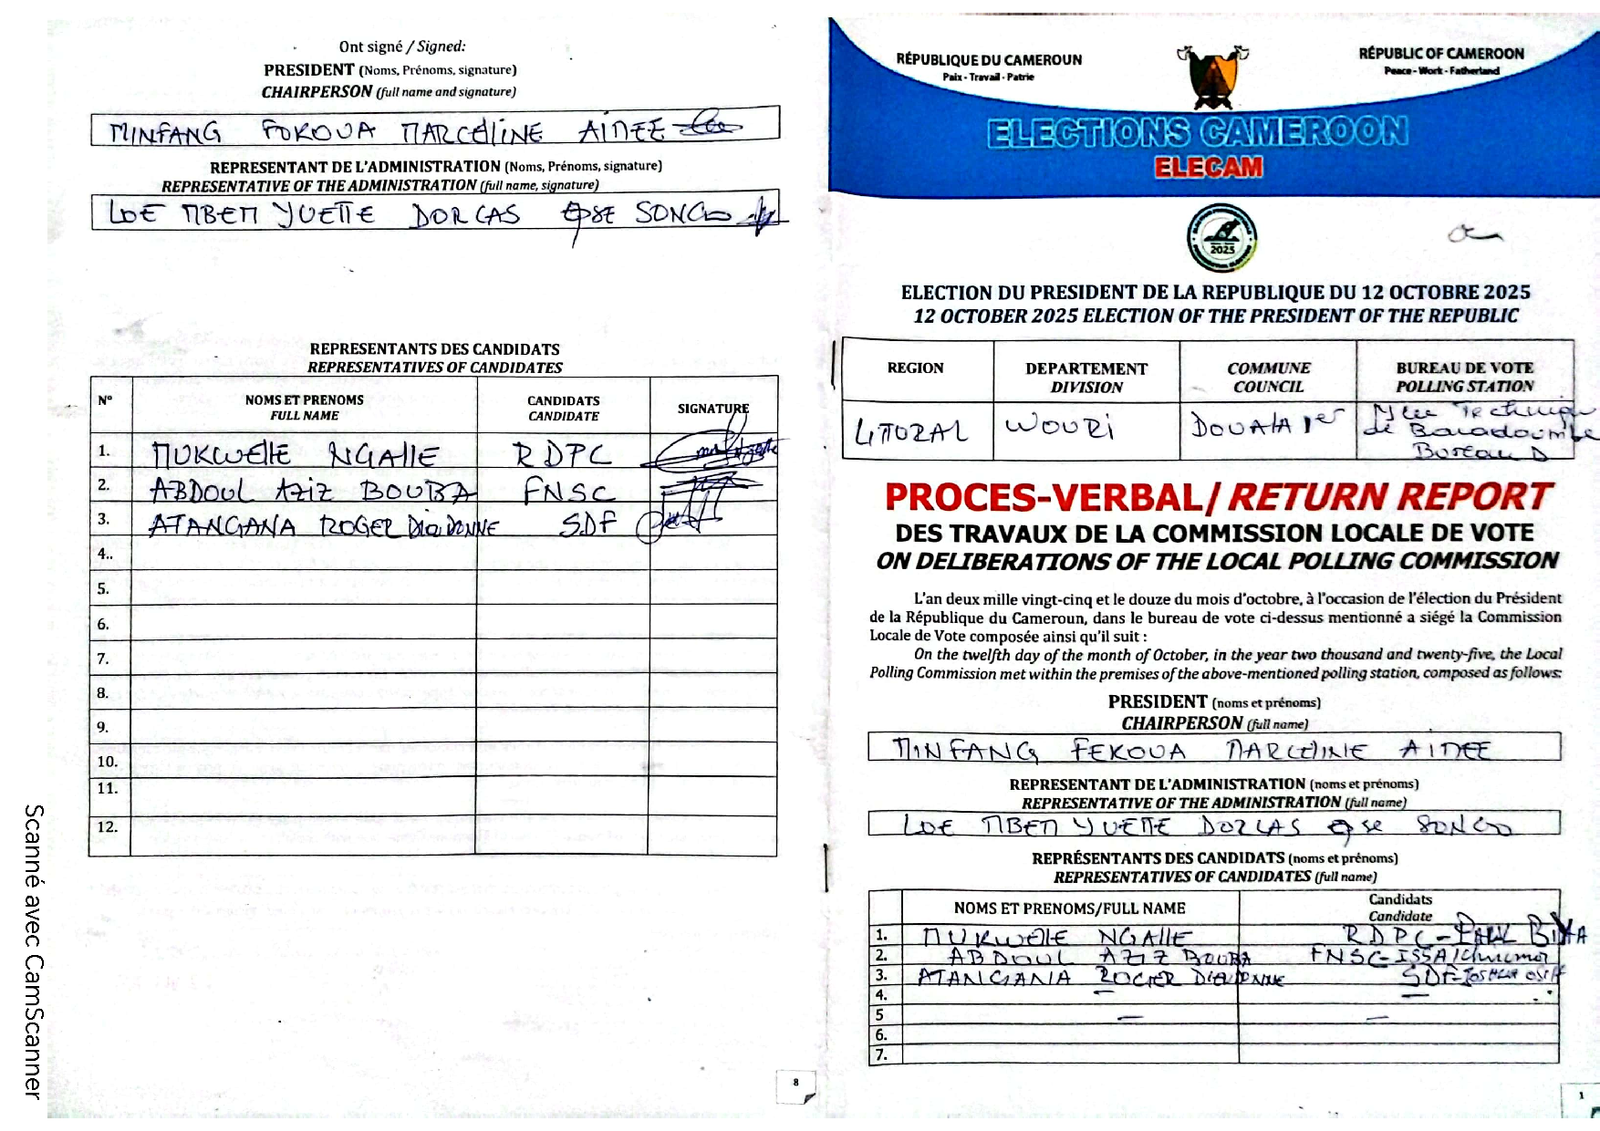 Ont signé / Signed:
PRESIDENT (Noms, Prénoms, signature)
CHAIRPERSON (full name and signature)
MINFANG FOKOUA MARCELINE AIMEE
REPRESENTANT DE L'ADMINISTRATION (Noms, Prénoms, signature)
REPRESENTATIVE OF THE ADMINISTRATION (full name, signature)
LOE MBEM YVETTE DORCAS Epse SONGO
REPRESENTANTS DES CANDIDATS
REPRESENTATIVES OF CANDIDATES
N° NOMS ET PRENOMS CANDIDATS SIGNATURE
FULL NAME CANDIDATE
1. MUKWELLE NGALLE RDPC
2. ABDOUL AZIZ BOUBA FNSC
3. ATANGANA ROGER DIEUDONNE SDF
4..
5.
6.
7.
8.
9.
10.
11.
12.
8
Scanné avec CamScanner
RÉPUBLIQUE DU CAMEROUN
Paix - Travail - Patrie
RÉPUBLIC OF CAMEROON
Peace - Work - Fatherland
ELECTIONS CAMEROON
ELECAM
2025
ELECTION DU PRESIDENT DE LA REPUBLIQUE DU 12 OCTOBRE 2025
12 OCTOBER 2025 ELECTION OF THE PRESIDENT OF THE REPUBLIC
REGION DEPARTEMENT COMMUNE BUREAU DE VOTE
DIVISION COUNCIL POLLING STATION
LITORAL WOURI DOUALA 1er Technique
de
Bureau D
PROCES-VERBAL/ RETURN REPORT
DES TRAVAUX DE LA COMMISSION LOCALE DE VOTE
ON DELIBERATIONS OF THE LOCAL POLLING COMMISSION
L'an deux mille vingt-cinq et le douze du mois d'octobre, à l'occasion de l'élection du Président
de la République du Cameroun, dans le bureau de vote ci-dessus mentionné a siégé la Commission
Locale de Vote composée ainsi qu'il suit :
On the twelfth day of the month of October, in the year two thousand and twenty-five, the Local
Polling Commission met within the premises of the above-mentioned polling station, composed as follows:
PRESIDENT (noms et prénoms)
CHAIRPERSON (full name)
MINFANG FEKOUA MARCELINE AIMEE
REPRESENTANT DE L'ADMINISTRATION (noms et prénoms)
REPRESENTATIVE OF THE ADMINISTRATION (full name)
LOE MBEM YVETTE DORCAS epse SONGO
REPRÉSENTANTS DES CANDIDATS (noms et prénoms)
REPRESENTATIVES OF CANDIDATES (full name)
NOMS ET PRENOMS/FULL NAME Candidats
Candidate
1. MUKWELLE NGALLE RDPC - PAUL BIYA
2. ABDOUL AZIZ BOUBA FNSC - ISSA Tchiroma
3. ATANGANA ROGER DIEUDONNE SDF - JOSHUA OSIH
4. — —
5 — —
6.
7.
1